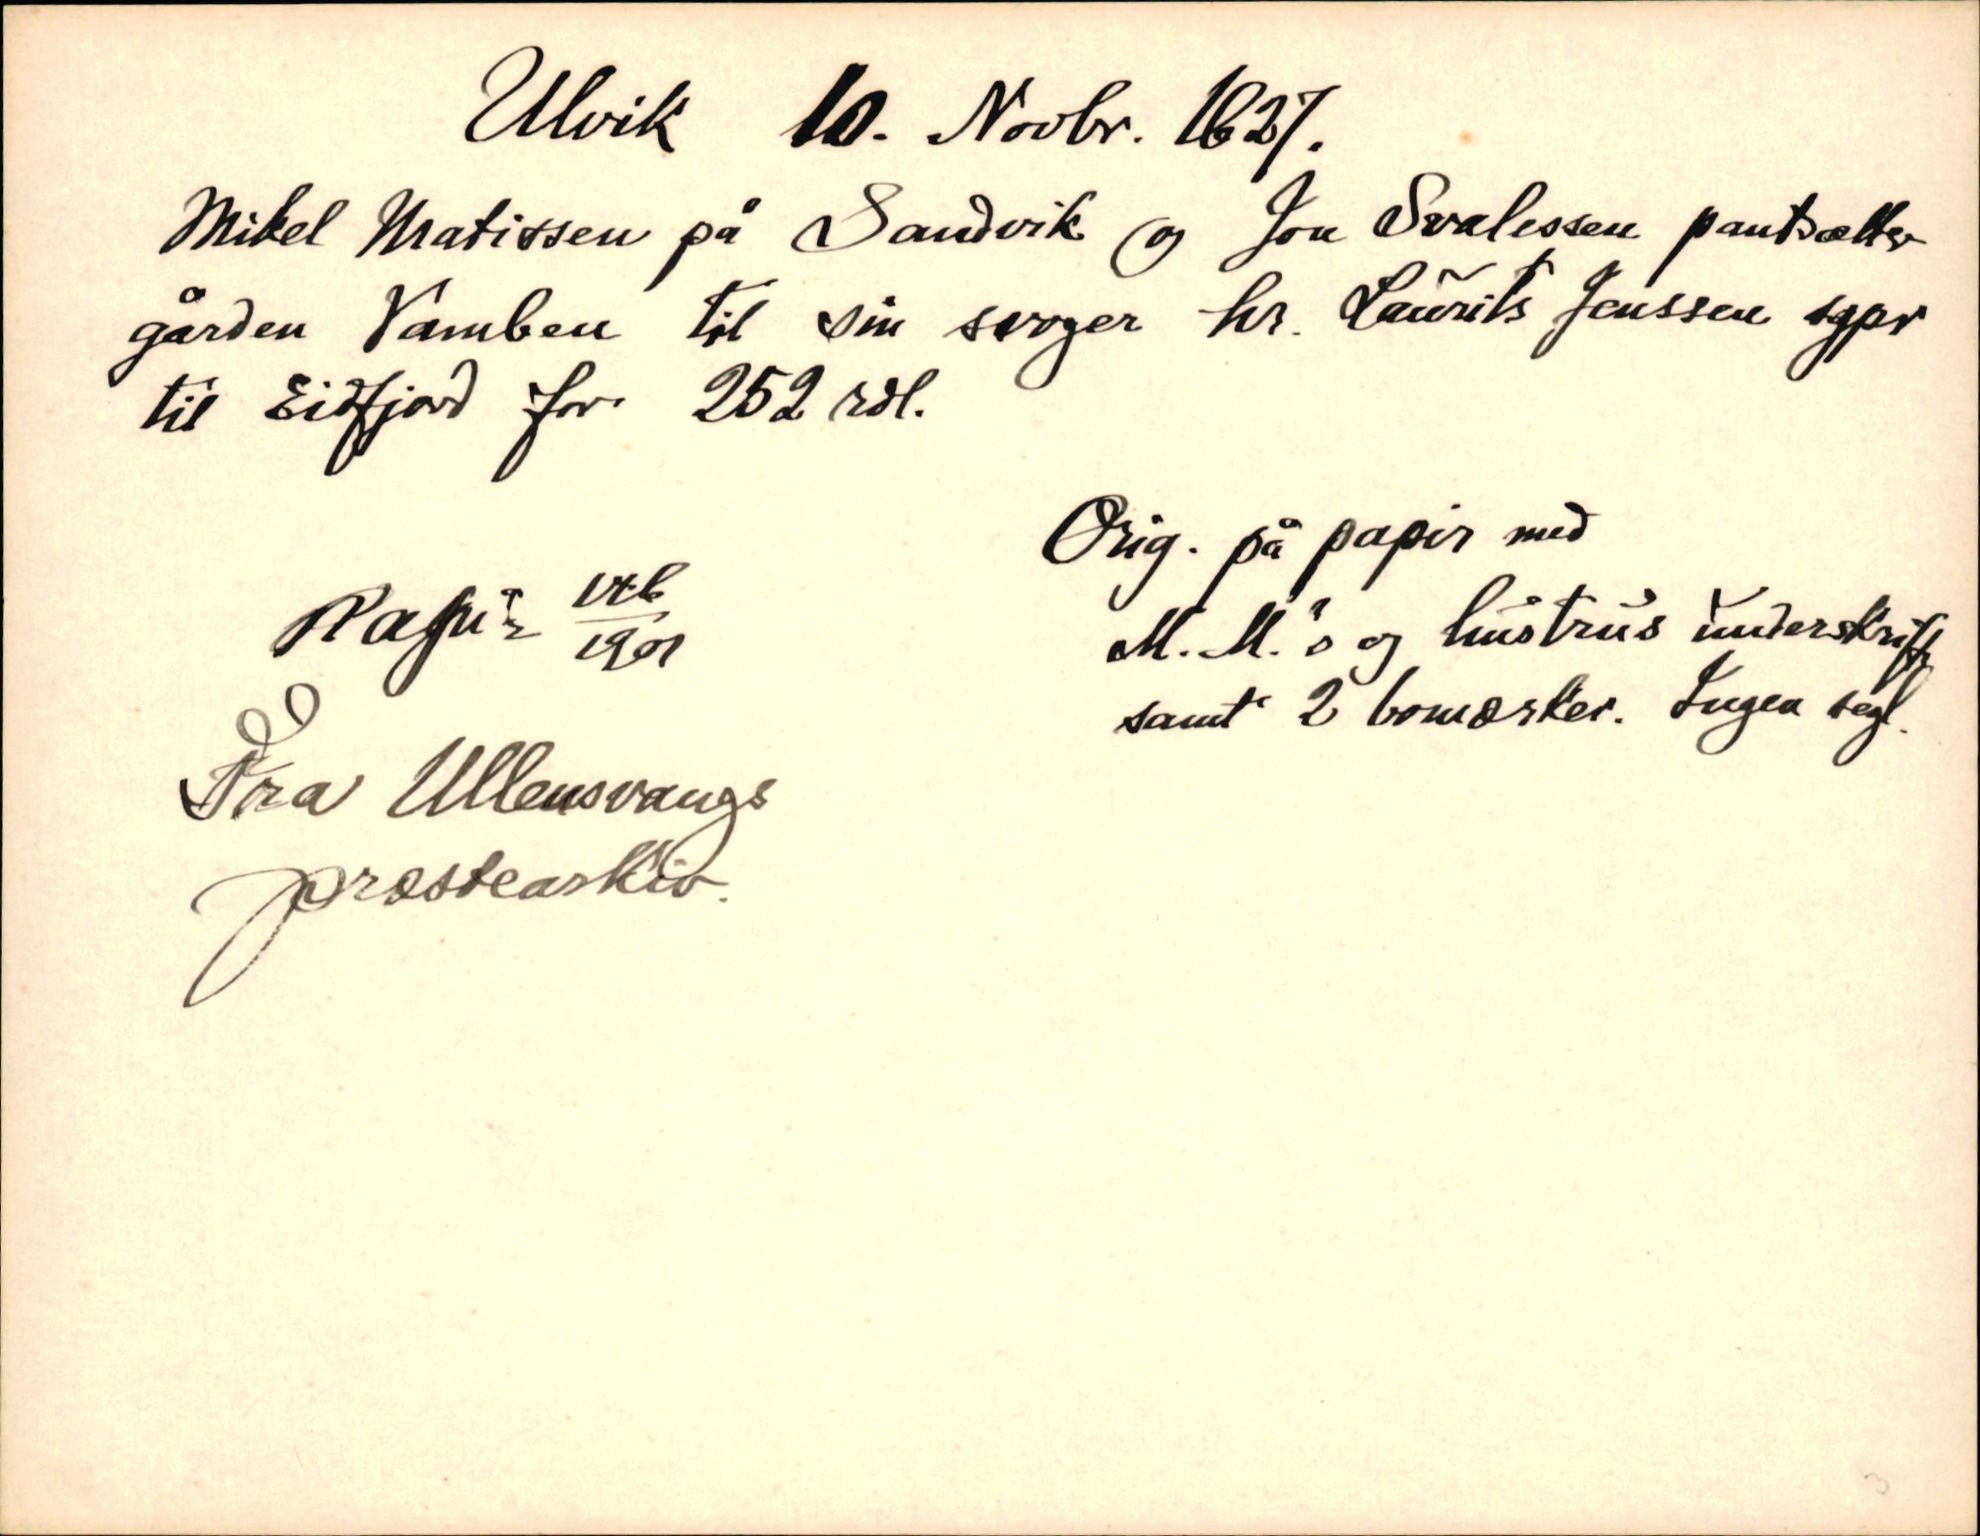 Ulvik 10. Novbr. 1627.
Mikel Matissen på Sandvik og Jon Svalessen pantsætter
gården Vamben til sin svoger hr. Laurits Jenssen sgpr
til Eidfjord for 252 rdl.
Orig. på papir med
M. M.'s og hustrus underskrift
samt 2 bomærker. Ingen segl.
Papir
1901
Fra Ullensvangs
præstearkiv.